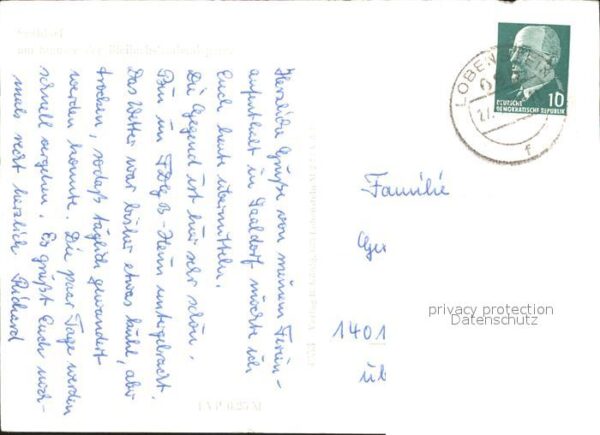 Saaldorf
am Stausee der
Herzliche Grüße von meinem Ferien-
aufenthalt in Saaldorf möchte ich
Euch heute übermitteln.
Die Gegend ist hier sehr schön.
Bin im FDGB-Heim untergebracht.
Das Wetter war bisher etwas kühl, aber
trocken, sodaß täglich gewandert
werden konnte. Die paar Tage werden
schnell vergehen. Es grüßt Euch noch-
mals recht herzlich Richard
EVP 0,25 M
LOBENSTEIN
10
DEUTSCHE
DEMOKRATISCHE REPUBLIK
f
Familie
Ger
1401
üb
privacy protection
Datenschutz